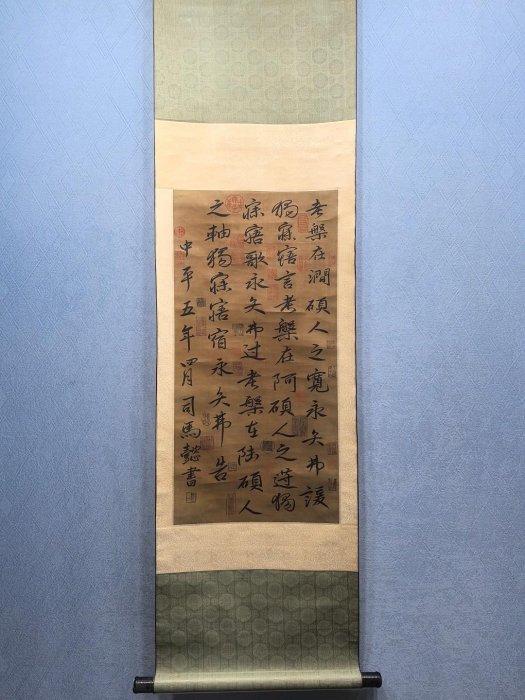 考槃在澗碩人之寬永矢弗諼
獨寐寤言考槃在阿碩人之薖獨
寐寤歌永矢弗过考槃在陸碩人
之軸獨寐寤宿永矢弗告
中平五年四月司馬懿書